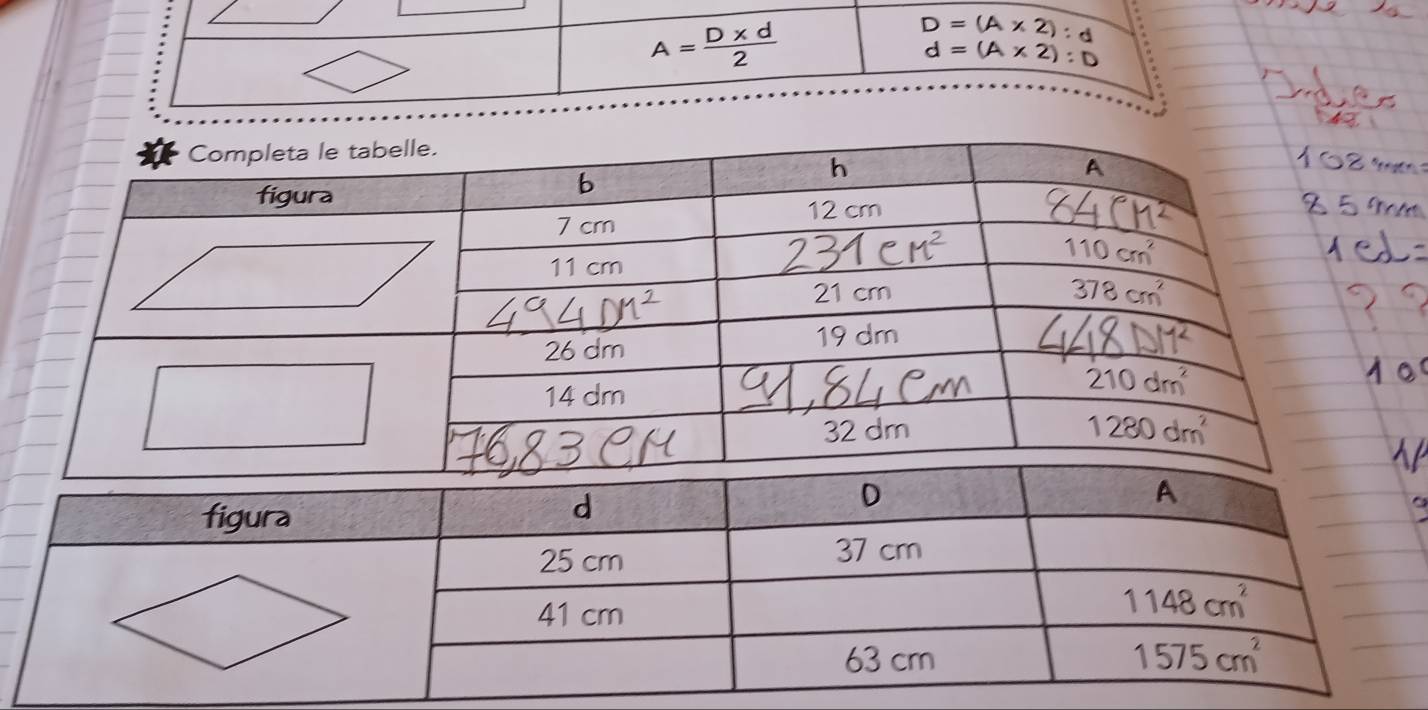 A = D × d / 2
D = (A × 2) : d
d = (A × 2) : D
1 Completa le tabelle.
figura b h A
7 cm 12 cm 84 cm²
11 cm 231 cm² 110 cm²
494 DM² 21 cm 378 cm²
26 dm 19 dm 448 DM²
14 dm 91,84 cm 210 dm²
76,83 cm 32 dm 1280 dm²
figura d D A
25 cm 37 cm
41 cm 1148 cm²
63 cm 1575 cm²
108 mm =
85 mm
1 cd =
? ?